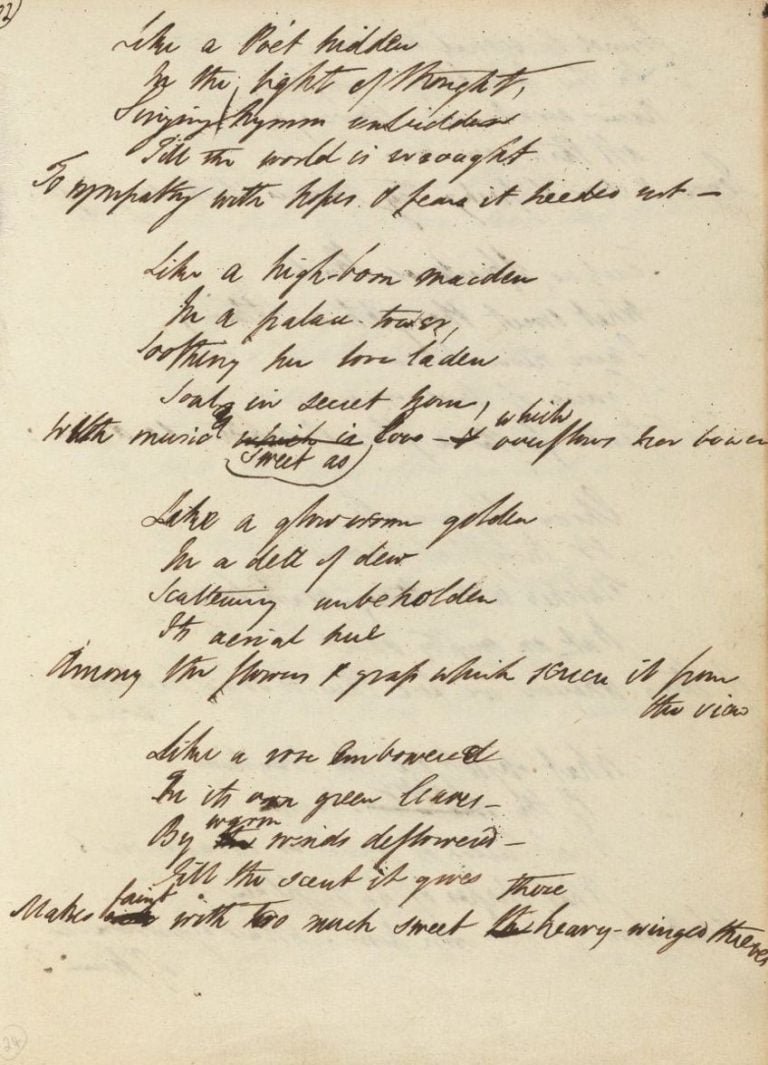 Like a Poet hidden
In the light of thought,
Singing hymns unbidden
Till the world is wrought
To sympathy with hopes & fears it heeded not —
Like a high-born maiden
In a palace tower,
Soothing her love laden
Soul in secret hour,
which
With music which is love — & overflows her bower
sweet as
Like a glow worm golden
In a dell of dew
Scattering unbeholden
Its aerial hue
Among the flowers & grass which screen it from
the view
Like a rose embowered
In its own green leaves —
warm
By the winds deflowered —
Till the scent it gives
faint those
Makes with too much sweet the heavy-winged thieves
24